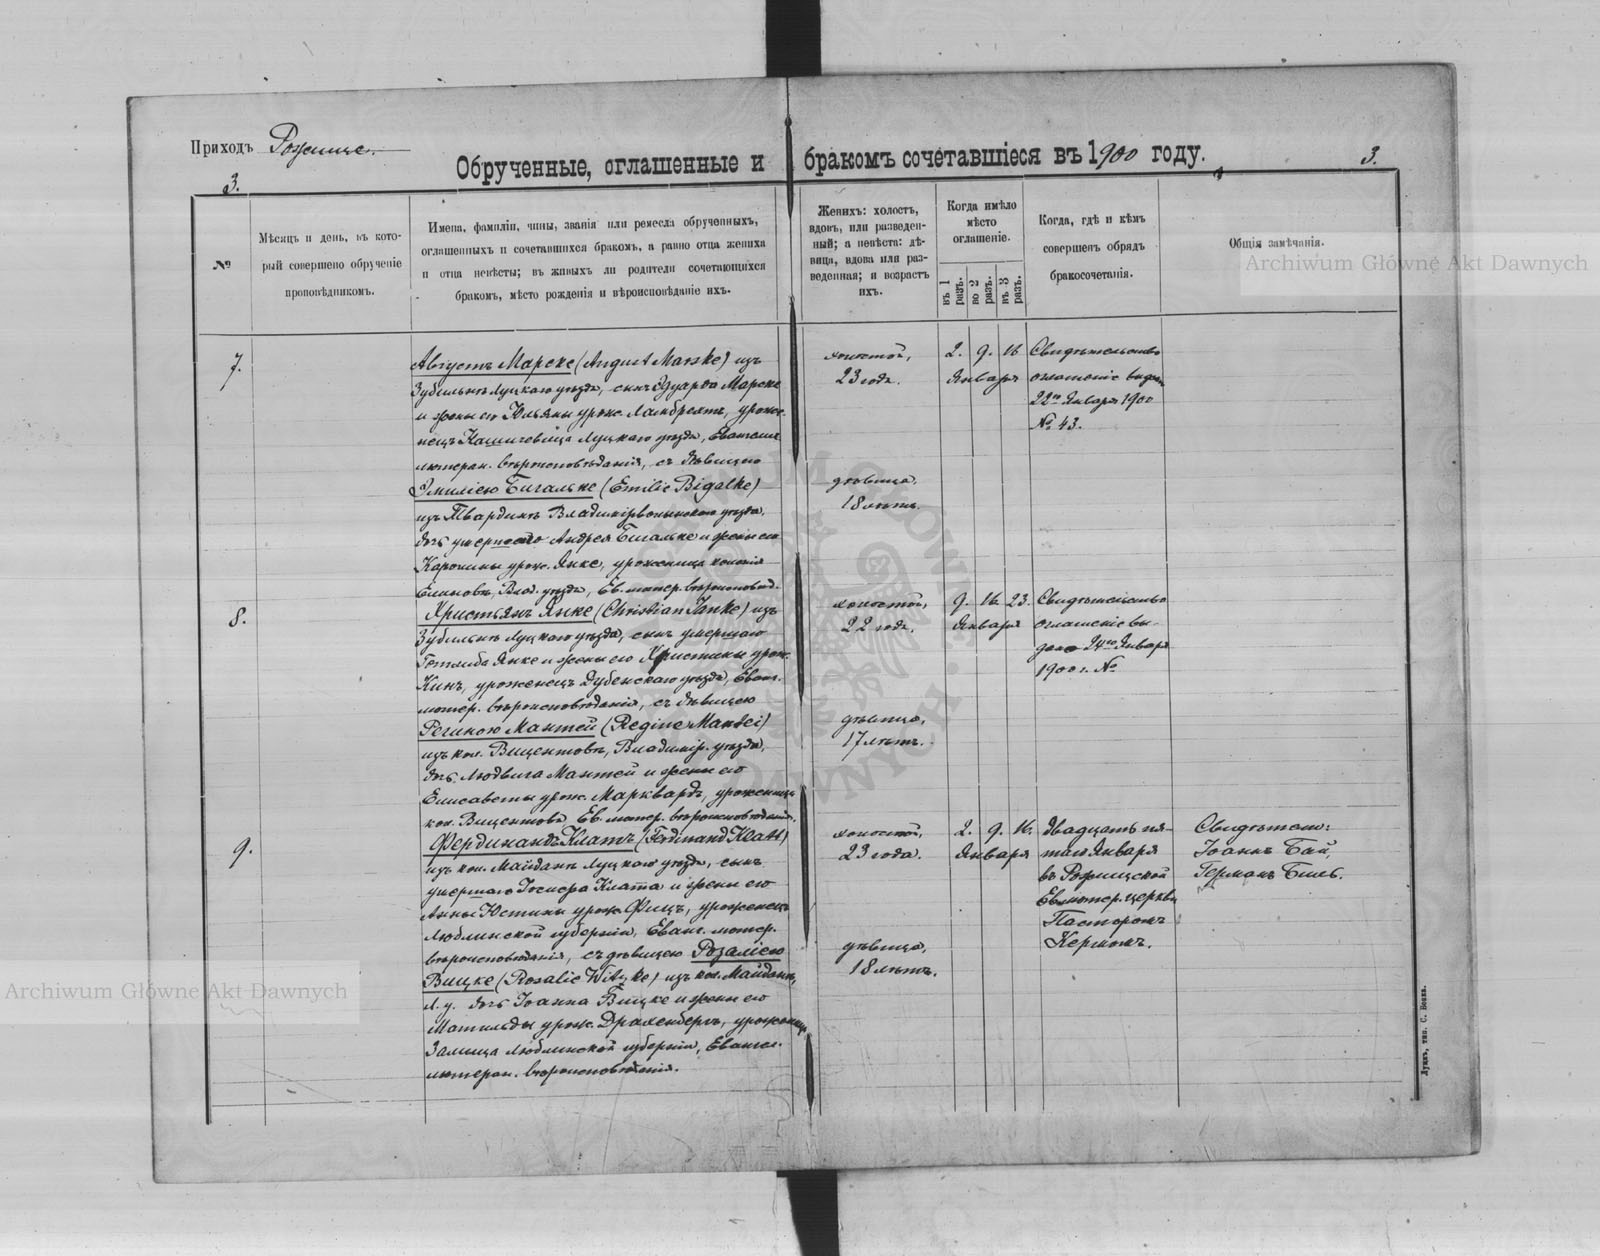 Приходъ Рожище.
Обрученные, оглашенные и бракомъ сочетавшіеся въ 1900 году.
3.
3.
№
Мѣсяцъ и день, въ кото-
рый совершено обрученіе
проповѣдникомъ.
Имена, фамиліи, чины, званія или ремесла обрученныхъ,
оглашенныхъ и сочетавшихся бракомъ, а равно отца жениха
и отца невѣсты; въ живыхъ ли родители сочетающихся
бракомъ, мѣсто рожденія и вѣроисповѣданіе ихъ.
Женихъ: холостъ,
вдовъ, или разведен-
ный; а невѣста: дѣ-
вица, вдова или раз-
веденная; и возрастъ
ихъ.
Когда имѣло
мѣсто
оглашеніе.
въ 1 разъ.
во 2 разъ.
въ 3 разъ.
Когда, гдѣ и кѣмъ
совершенъ обрядъ
бракосочетанія.
Общія замѣчанія.
7.
Августъ Марске (August Marske) изъ
Зубильнъ Луцкаго уѣзда, сынъ Эдуарда Марске
и жены его Юльяны урож. Ламбрехтъ, уроже-
нецъ Луцкаго уѣзда, Евангел.
лютеран. вѣроисповѣданія, съ дѣвицею
Эмиліею Бигальке (Emilie Bigalke)
изъ Твардинъ Владимірволынскаго уѣзда,
дочь умершаго Андрея Бигальке и жены его
Каролины урож. Янке, уроженица колоніи
Влад. уѣзда, Ев. лютер. вѣроисповѣд.
холостой,
23 года.
дѣвица,
18 лѣтъ.
2. 9. 16
Января
Свидѣтельство
оглашеніе выдано
22го Января 1900
№ 43.
8.
Христьянъ Янке (Christian Janke) изъ
Зубильнъ Луцкаго уѣзда, сынъ умершаго
Готлиба Янке и жены его Христины урож.
Кинъ, уроженецъ Дубенскаго уѣзда, Еванг.
лютер. вѣроисповѣданія, съ дѣвицею
Региною Мантей (Regine Mantei)
изъ кол. Вицентовъ, Владимір. уѣзда,
дочь Людвига Мантей и жены его
Елисаветы урож. Марквардъ, уроженица
кол. Вицентовъ Ев. лютер. вѣроисповѣданія.
холостой,
22 года.
дѣвица,
17 лѣтъ.
9. 16. 23.
Января
Свидѣтельство
оглашеніе вы-
дано 24го Января
1900 г. №
9.
Фердинандъ Клатъ (Ferdinand Klatt)
изъ кол. Майданъ Луцкаго уѣзда, сынъ
умершаго Іосифа Клата и жены его
Анны Юстины урож. Фицъ, уроженецъ
Люблинской губерніи, Еванг. лютер.
вѣроисповѣданія, съ дѣвицею Розаліею
Вицке (Rosalie Witzke) изъ кол. Майданъ,
Л. у. дочь Іоанна Вицке и жены его
Матильды урож. Драхенбергъ, уроженица
Люблинской губерніи, Евангел.
лютеран. вѣроисповѣданія.
холостой,
23 года.
дѣвица,
18 лѣтъ.
2. 9. 16.
Января
Двадцать пя-
таго Января
въ Рожищской
Ев. лютер. церкви
Пасторомъ
Кермомъ.
Свидѣтели:
Іоаннъ Бай,
Германъ
Луцкъ, тип. С. Бокка.
Archiwum Główne Akt Dawnych
Archiwum Główne Akt Dawnych